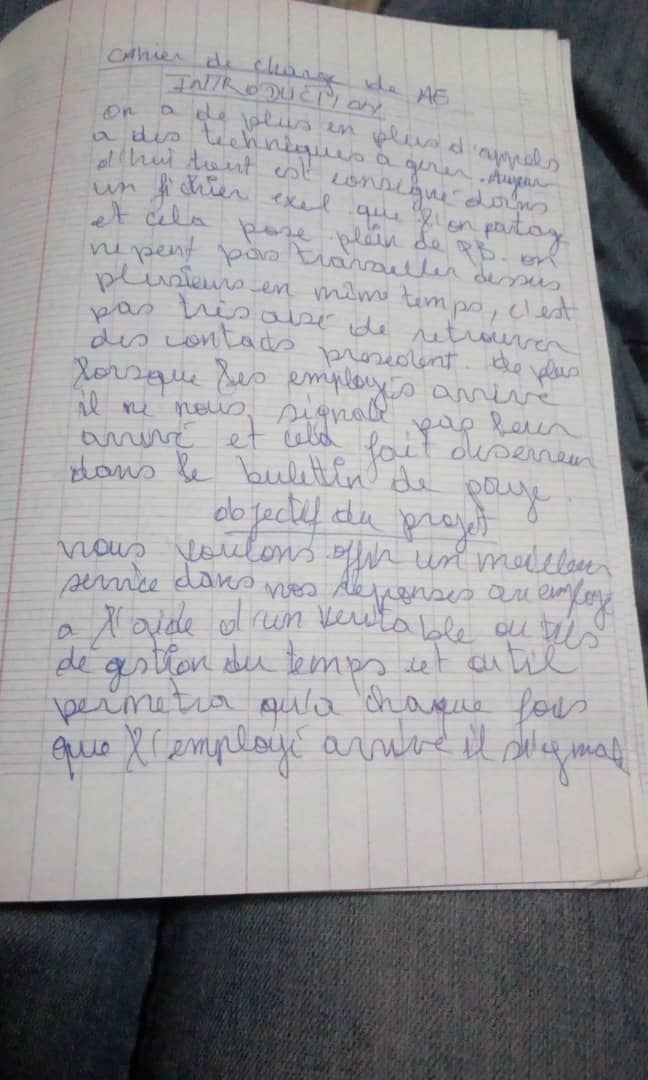 cahier de charge de AE
INTRODUCTION
on a de plus en plus d'appels
a des techniques a gerer. Aujour
d'hui tout est consigné dans
un fichier exel que l'on partag
et cela pose plein de PB. on
ne pent pas travailler dessus
plusieurs en même temps, c'est
pas très aisé de retrouver
des contats precedent. de plus
lorsque les employés arrive
il ne nous signale pas leur
arrivé et cela fait des erreur
dans le bulettin de paye.
objectif du projet
nous voulons offir un meilleur
service dans nos reponses au employé
a l'aide d'un veritable outils
de gestion du temps cet outil
permetra qu'a chaque fois
que l'employé arrive il signale